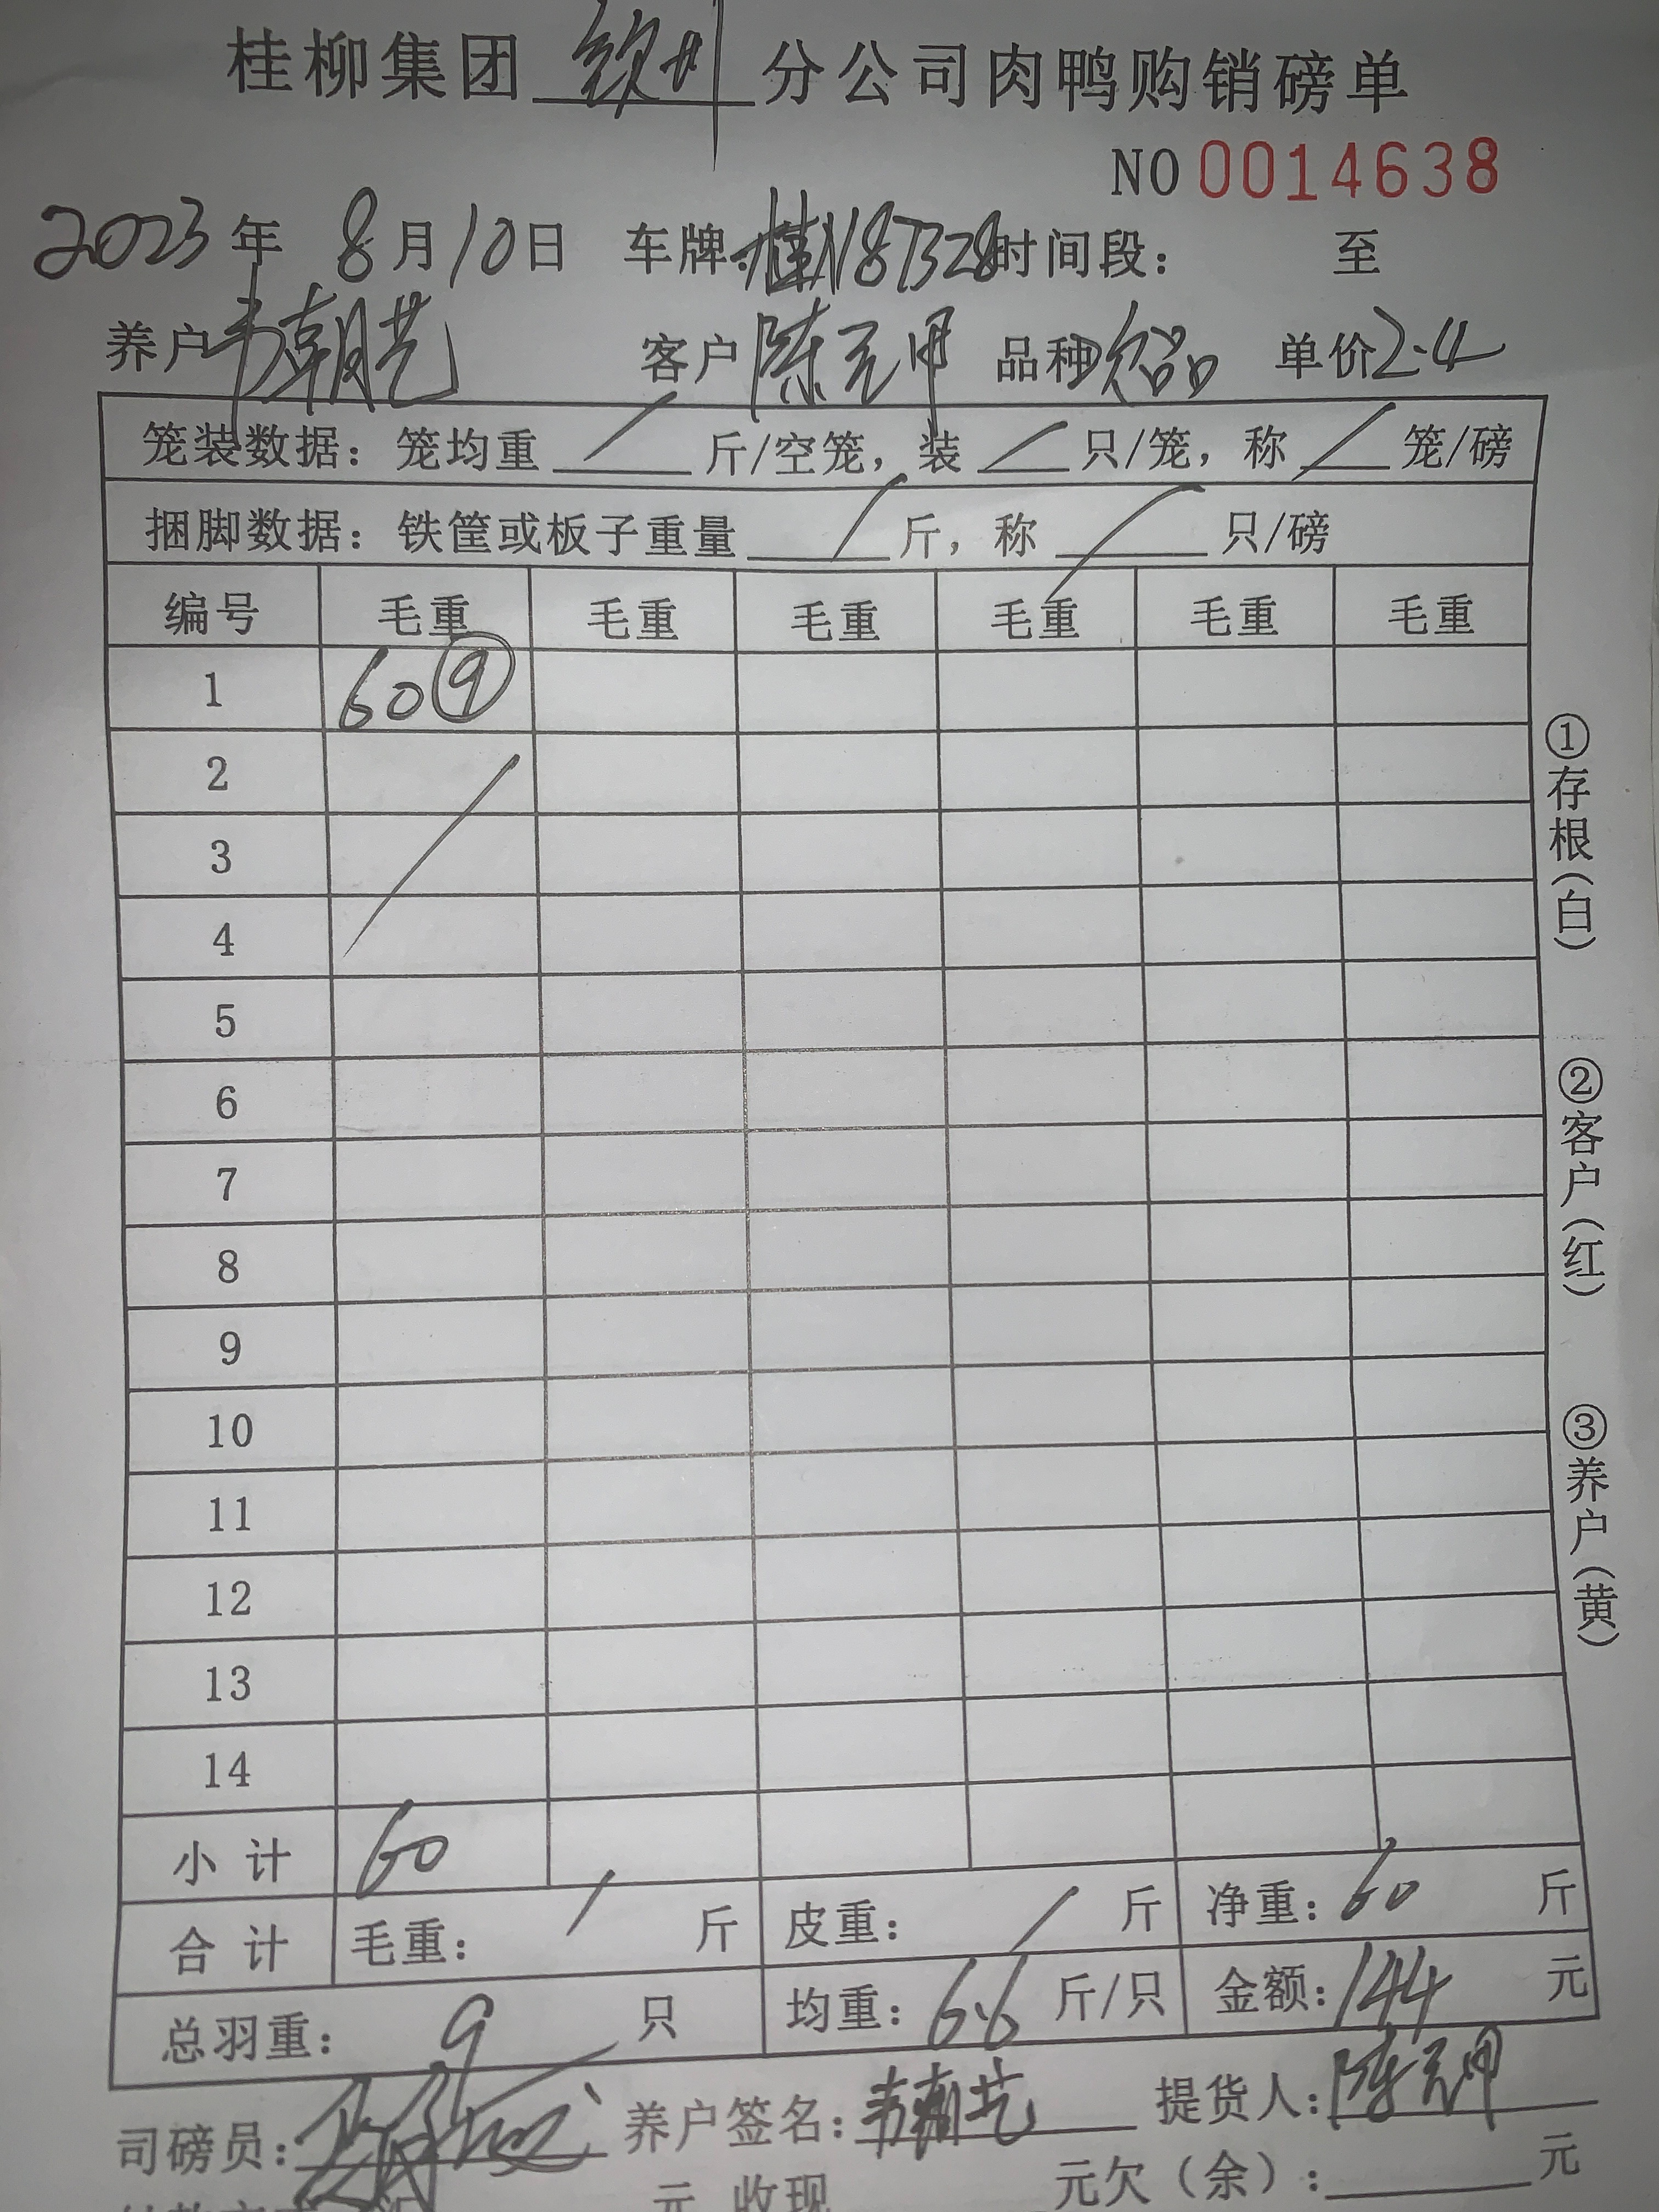 桂柳集团钦州分公司肉鸭购销磅单
NO 0014638
2023年8月10日 车牌:桂N87328时间段: 至
养户韦朝艺 客户陈元甲 品种次品 单价2.4
笼装数据:笼均重/斤/空笼,装/只/笼,称/笼/磅
捆脚数据:铁筐或板子重量/斤,称/只/磅
编号 毛重 毛重 毛重 毛重 毛重 毛重
1 60⑨
2
3
4
5
6
7
8
9
10
11
12
13
14
小计 60
合计 毛重:/斤 皮重:/斤 净重:60斤
总羽重:9只 均重:6.6斤/只 金额:144元
司磅员: 养户签名:韦朝艺 提货人:陈元甲
元 收现 元欠(余):元
①存根(白)
②客户(红)
③养户(黄)